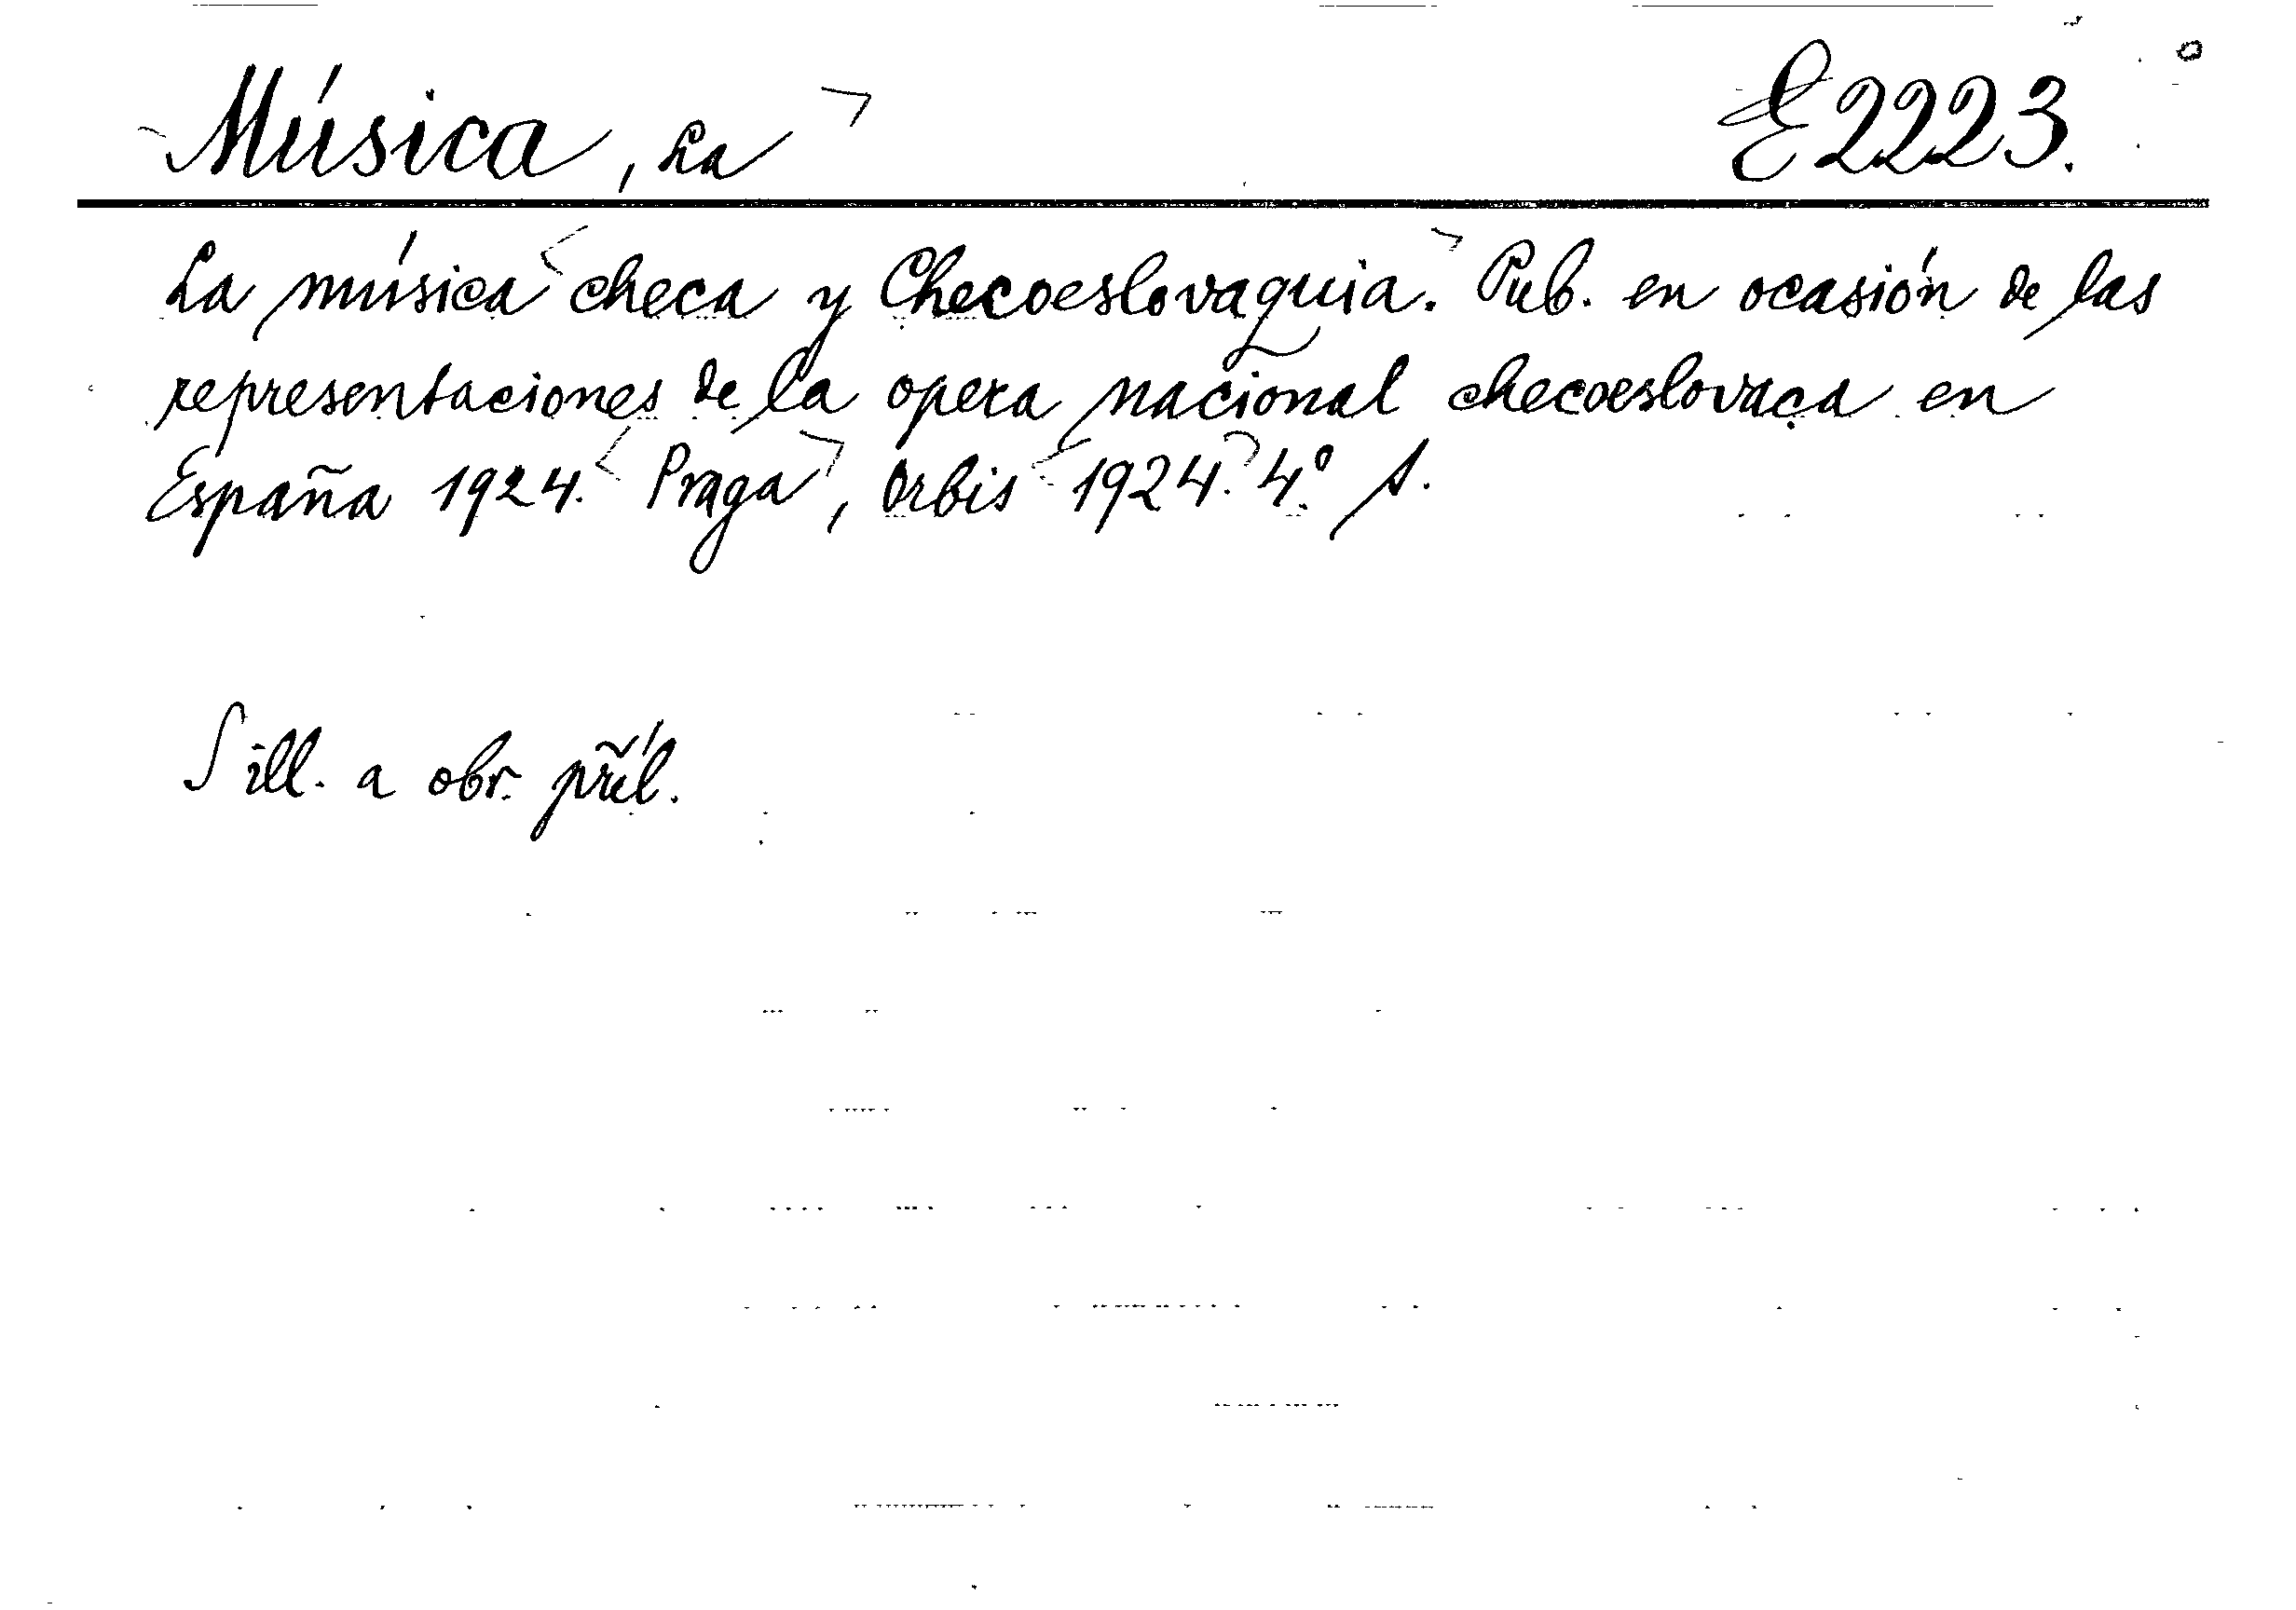 Música, La
E 2223.
La música checa y Checoeslovaquia. Pub. en ocasión de las
representaciones de la opera nacional checoeslovaca en
España 1924. Praga, Orbis 1924. 4.º s.
S ill. a obr. příl.